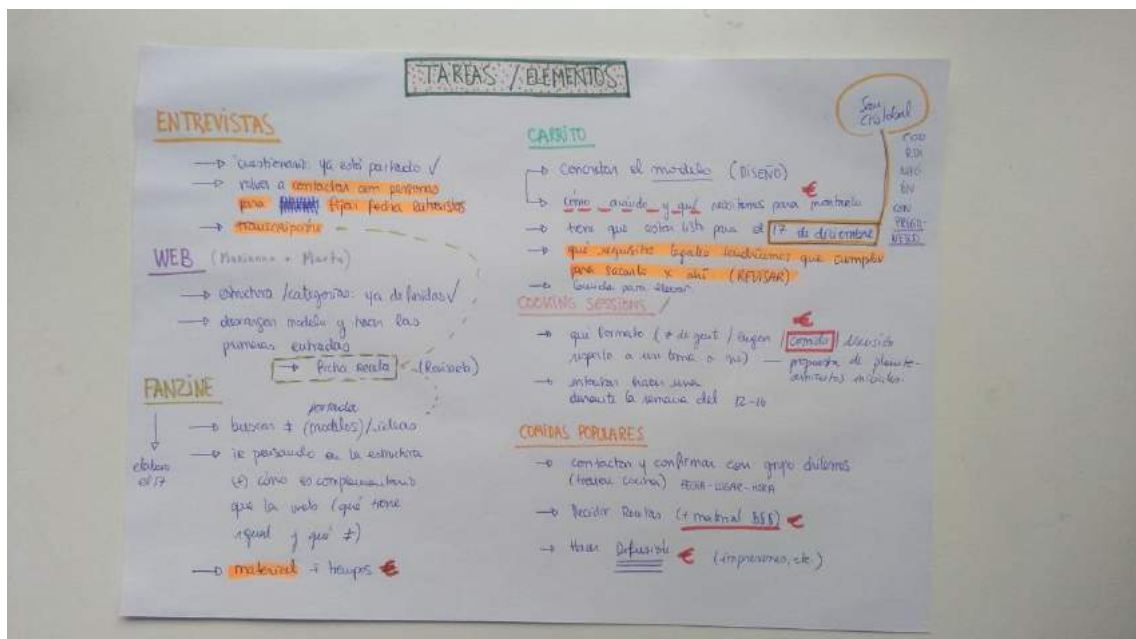 TAREAS / ELEMENTOS
ENTREVISTAS
→ cuestionario: ya está parteado ✓
→ volver a contactar con personas
para fijar fecha entrevistas
→ transcripción
WEB (Marianna + Marta)
→ estructura / categorías: ya definidas ✓
→ descargar modelo y hacer las
primeras entradas
→ ficha receta (Revisarla)
FANZINE
elaborar
el 17
portada
→ buscar ≠ (modelos) / ideas
→ ir pensando en la estructura
(+) cómo es complementario
que la web (qué tiene
igual y qué ≠)
→ material + tiempos €
San
Cristobal
COO
RDI
NAC
ÓN
CON
CARRITO
→ concretar el modelo (DISEÑO)
→ cómo, cuándo y qué necesitamos para montarlo €
→ tiene que estar listo para el 17 de diciembre
→ qué requisitos legales tendríamos que cumplir
para sacarlo x ahí (REVISAR)
→ para
COOKING SESSIONS /
→ qué formato (≠ de gent / / comida / discusión €
respecto a un tema o no) — propuesta de
→ intentar hacer una
durante la semana del 12-16
COMIDAS POPULARES
→ contactar y confirmar con grupo chilenos
(tienen cocina) FECHA - LUGAR - HORA
→ Decidir Recetas (+ material $$$) €
→ Hacer Difusión € (impresiones, etc.)